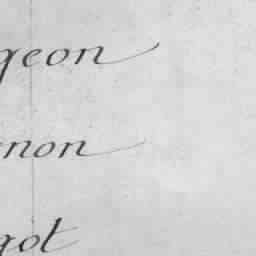 geon
non
got